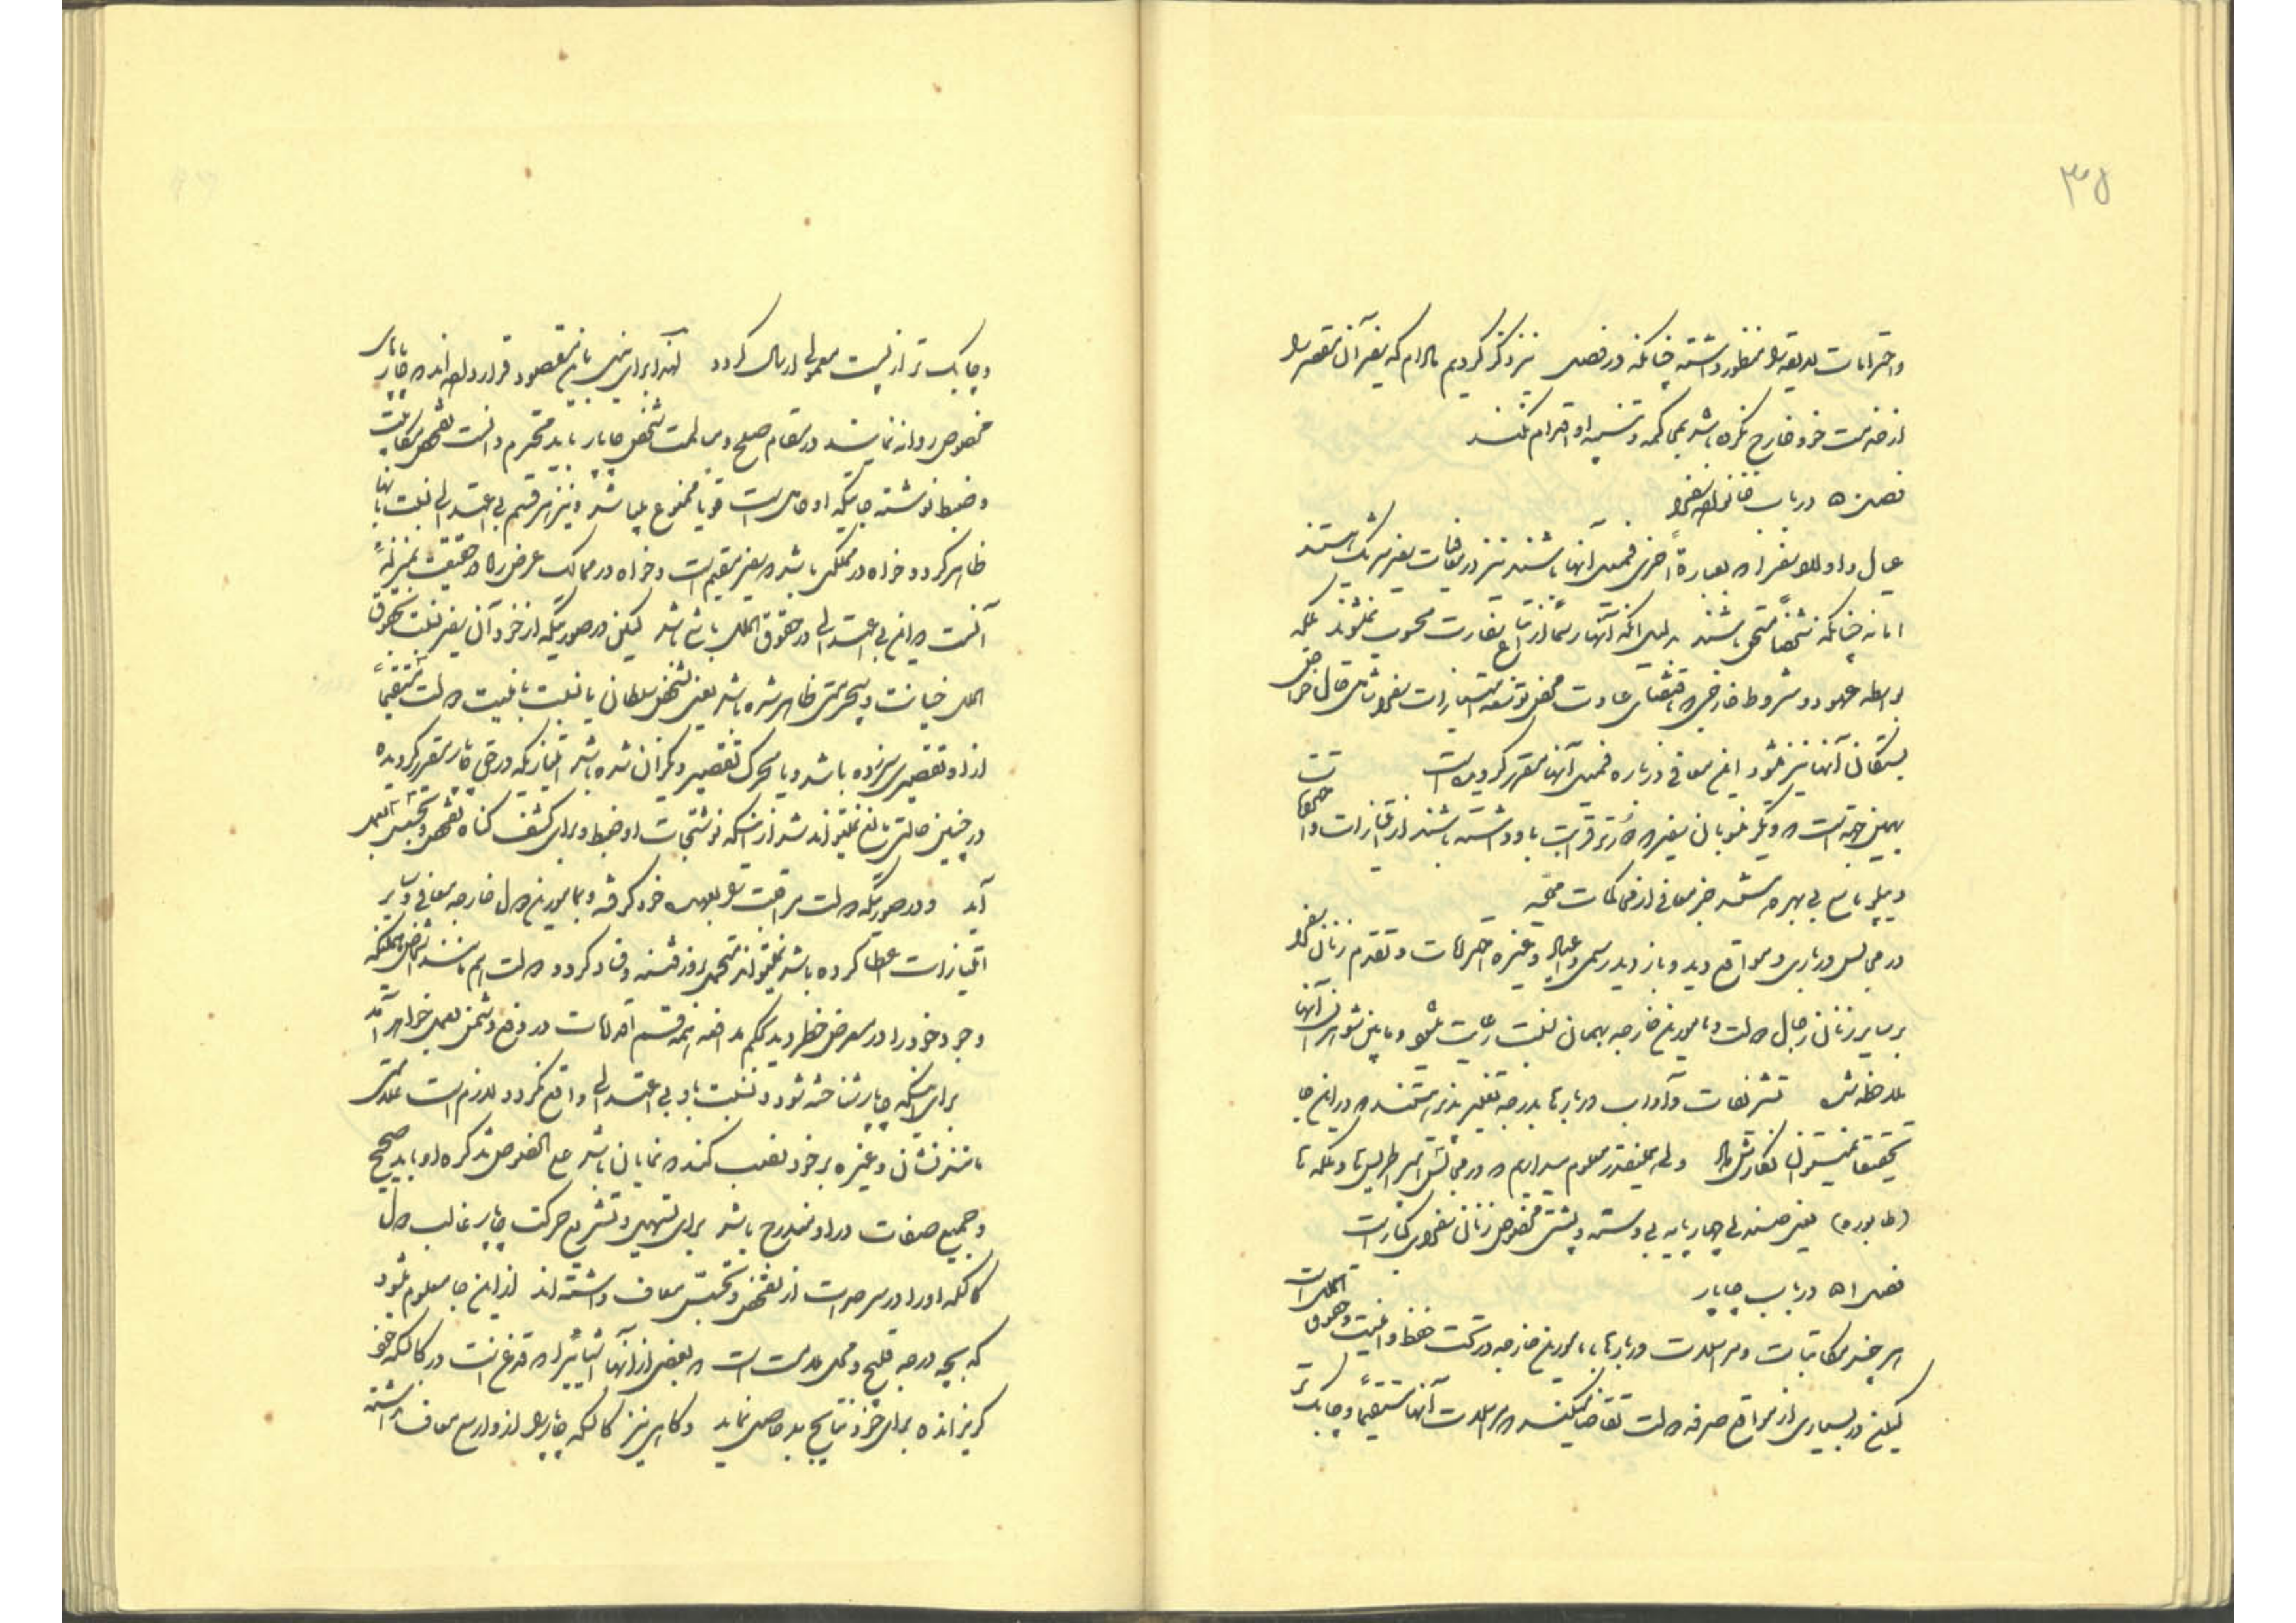 ۳۵
واحترامات لایقه را منظور داشته چنانکه در فصل نیز ذکر کردیم مادام که سفیر آن مقصر را
از خدمت خود خارج نکرده باشد بمحاکمه و تنبیه او اقدام نکنند
فصل ۵۰ در باب خانواده سفرا
عیال و اولاد سفرا و بعبارة اخری فمیل آنها باشند نیز در معافیات سفیر شریک هستند
اما نه چنانکه شخصاً مستحق باشند بدلیل آنکه آنها رسماً از اتباع سفارت محسوب نمیشوند بلکه
بواسطه عهود و شروط خارجی و اقتضای عادت محض توسعه امتیازات سفرا شامل حال خواص
بستگان آنها نیز میشود این معافی درباره فمیل آنها مقرر گردیده است
بهمین جهت است که دیگر منسوبان سفیر که دورتر قرابت با او داشته باشند از امتیازات و احترامات
دیپلوماسی بی بهره هستند جز معافی از محاکمات محلیه
در مجالس درباری و مواقع دید و بازدید رسمی و اعیاد و غیره احترامات و تقدم زنان سفرا
بر سایر زنان رجال دولت و مامورین خارجه بهمان نسبت رعایت میشود و مابین شوهران آنها
ملاحظه میشود تشریفات و آداب دربارها بدرجه تغییر پذیر هستند که در این جا
تحقیقاً نمیتوان نگارش داد ولی همینقدر معلوم میداریم که در مجالس امپراطریس‌ها و ملکه‌ها
(طابوره) یعنی صندلی چهارپایه بی دسته و پشتی مخصوص زنان سفرای کبار است
فصل ۵۱ در باب چاپار
هر چند مکاتبات و مراسلات دربارها با مامورین خارجه در تحت حفظ و امنیت و حقوق الملل است
لیکن در بسیاری از مواقع صرفه دولت تقاضا میکند که مراسلات آنها مستقیماً و چابک تر
و چابک تر از پست معمولی ارسال گردد لهذا برای نیل باین مقصود قرار داده‌اند که چاپارهای
مخصوص روانه نمایند در مقام صلح و مسالمت شخص چاپار باید محترم دانست تفحص مکاتیب
و ضبط نوشته جاتیکه او حامل است قویاً ممنوع میباشد و نیز هر قسم بی اعتدالی نسبت بآنها
ظاهر گردد خواه در مملکتی باشد که سفیر مقیم است و خواه در ممالک عرض راه در حقیقت بمنزله
آنست که این بی اعتدالی در حقوق الملل باشد لیکن در صورتیکه از خود آن سفیر نسبت بحقوق
الملل خیانت و بیحرمتی ظاهر شده باشد یعنی بشخص سلطان یا نسبت بامنیت دولت مستقیماً
از او تقصیر سرزده باشد و یا محرک تقصیر دیگران شده باشد امتیازیکه در حق چاپار مقرر گردیده
در چنین حالتی مانع نمیتواند شد از اینکه نوشتجات او ضبط و برای کشف گناه تفحص و تجسس بعمل
آید و در صورتیکه دولت مراقبت را بعهده خود گرفته و بمامورین دول خارجه معافی و سایر
امتیازات عطا کرده باشد نمیتواند متحمل بروز فتنه و فساد گردد و دولت هم مانند اشخاص مادامیکه
وجود خود را در معرض خطر دید بحکم مدافعه همه قسم اقدامات در دفع دشمن بعمل خواهد آمد
برای اینکه چاپار شناخته شود و نسبت باو بی اعتدالی واقع نگردد لازم است علامتی
مانند نشان و غیره بر خود نصب کند که نمایان باشد علی الخصوص تذکره او باید صحیح
و جمیع صفات در او مندرج باشد برای تسهیل و تشریع حرکت چاپار غالب دول
کالسکه او را در سرحدات از تفحص و تجسس معاف داشته‌اند از این جا معلوم میشود
که بچه درجه قبیح و محل ملامت است که بعضی از آنها اشیائیرا که قدغن است در کالسکه خود
گریزانده برای خود نتایج بد حاصل نماید و گاهی نیز کالسکه چاپار را از وارسی معاف داشته